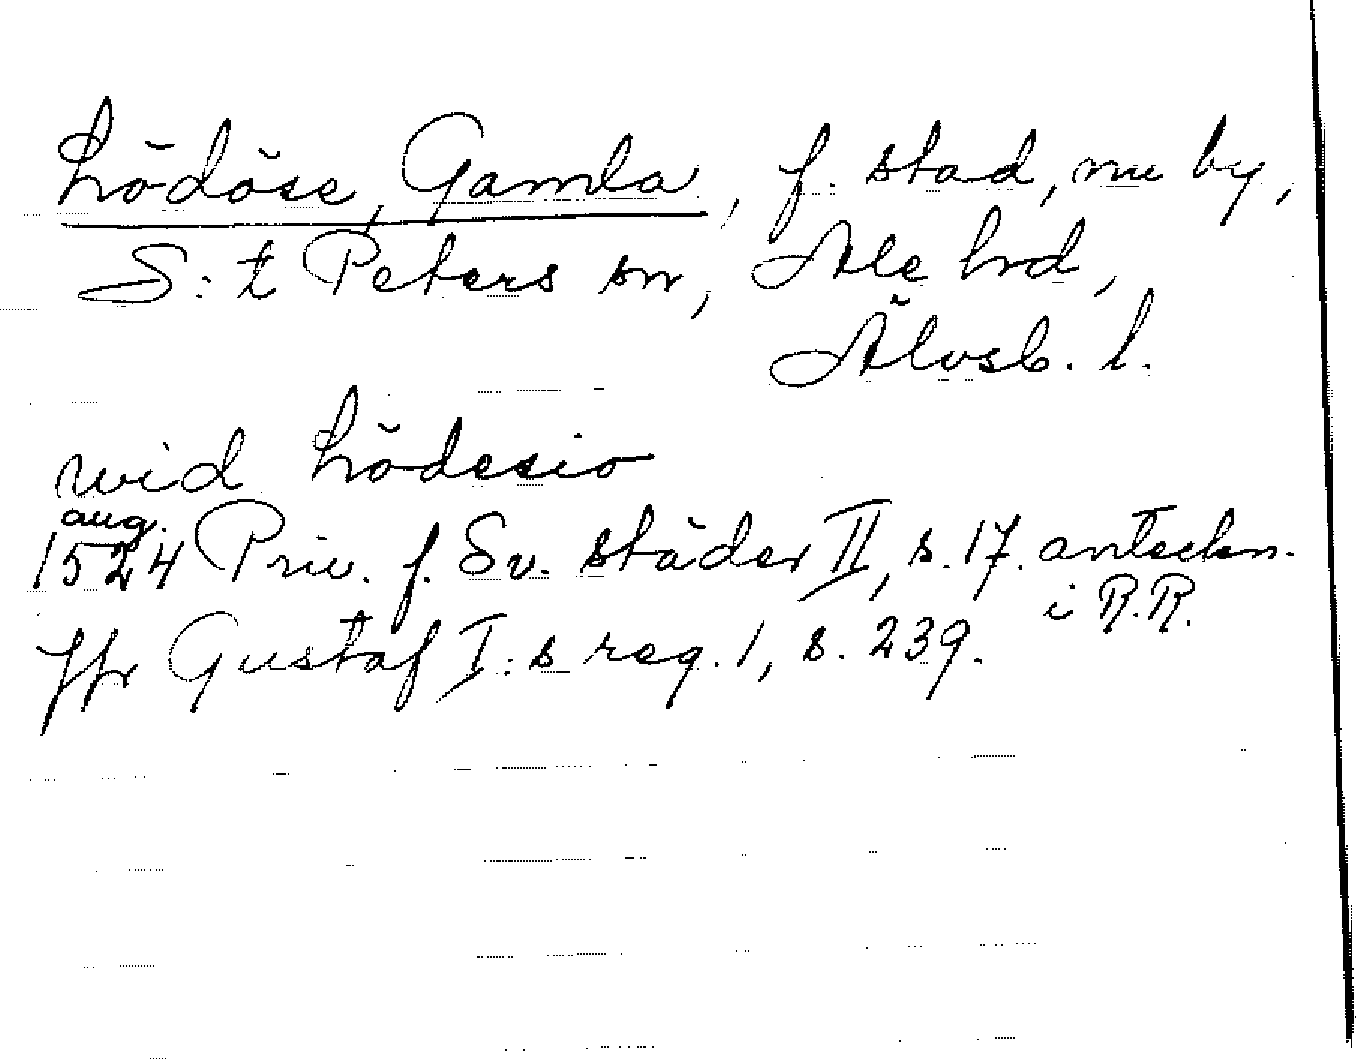 Lödöse, Gamla, f. stad, nu by,
S:t Peters sn, Ale hd,
Älvsb. l.
wid Lödesio
aug.
1524 Priv. f. Sv. städer II, s. 17. anteckn.
i R.R.
Jfr Gustaf I:s reg. 1, s. 239.